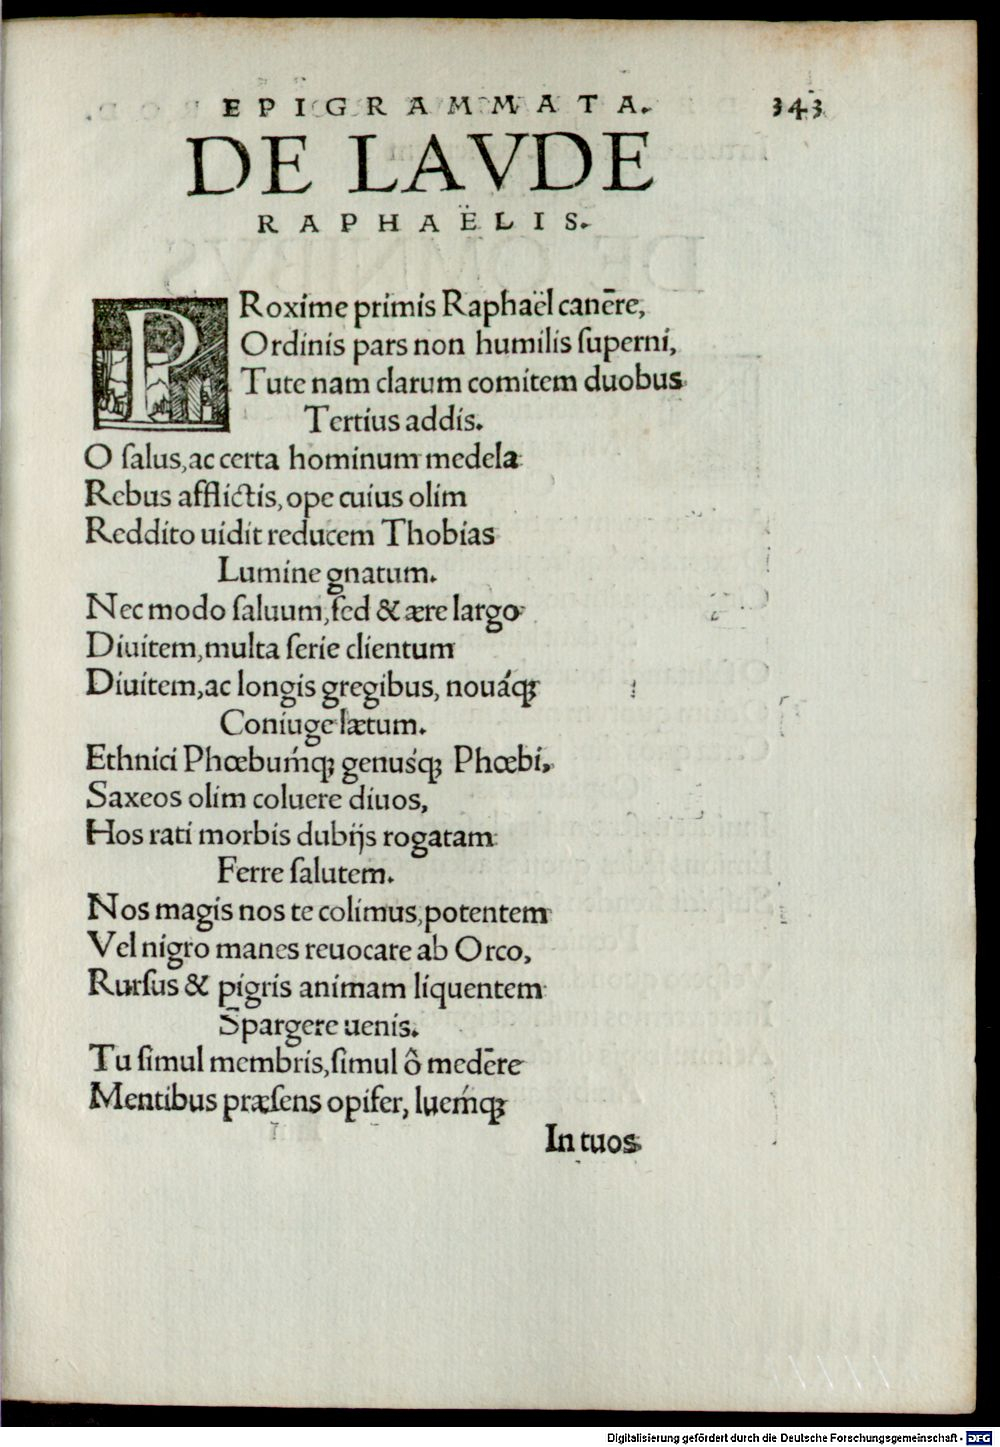 EPIGRAMMATA. 343
DE LAVDE
RAPHAËLIS.
PRoxime primis Raphaël canēre,
Ordinis pars non humilis ſuperni,
Tute nam clarum comitem duobus
Tertius addis.
O ſalus, ac certa hominum medela
Rebus afflictis, ope cuius olim
Reddito uidit reducem Thobias
Lumine gnatum.
Nec modo ſaluum, ſed & ære largo
Diuitem, multa ſerie clientum
Diuitem, ac longis gregibus, nouáq;
Coniuge lætum.
Ethnici Phœbuḿq; genuśq; Phœbi,
Saxeos olim coluere diuos,
Hos rati morbis dubijs rogatam
Ferre ſalutem.
Nos magis nos te colimus, potentem
Vel nigro manes reuocare ab Orco,
Rurſus & pigris animam liquentem
Spargere uenis.
Tu ſimul membris, ſimul ô medēre
Mentibus præſens opifer, lueḿq;
In tuos
Digitalisierung gefördert durch die Deutsche Forschungsgemeinschaft - DFG